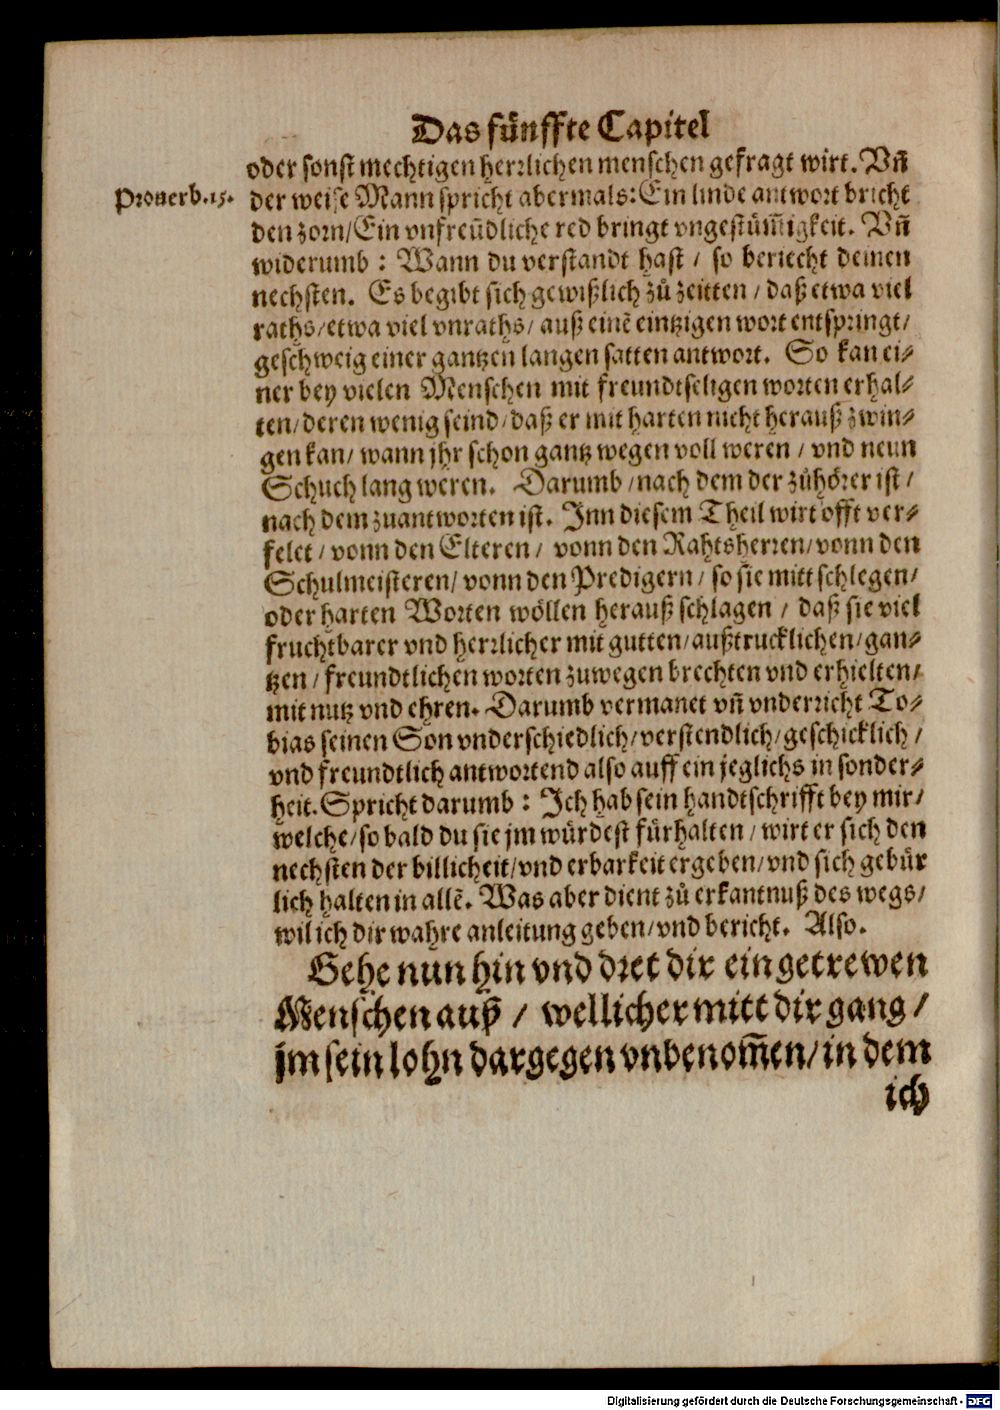 Das fünffte Capitel
oder sonst mechtigen herrlichen menschen gefragt wirt. Vñ
Prouerb.15.
der weise Mann spricht abermals: Ein linde antwort bricht
den zorn/Ein vnfreũdliche red bringt vngestüm̃igkeit. Vñ
widerumb : Wann du verstandt hast / so beriecht deinen
nechsten. Es begibt sich gewißlich zů zeitten / daß etwa viel
raths/etwa viel vnraths/ auß einẽ eintzigen wort entspringt/
geschweig einer gantzen langen satten antwort. So kan ei⸗
ner bey vielen Menschen mit freundtseligen worten erhal⸗
ten/deren wenig seind/daß er mit harten nicht herauß zwin⸗
gen kan/ wann jhr schon gantz wegen voll weren / vnd neun
Schuch lang weren. Darumb /nach dem der zůhörer ist /
nach dem zuantworten ist. Inn diesem Theil wirt offt ver⸗
felet / vonn den Elteren / vonn den Rahtsherren/vonn den
Schulmeisteren/ vonn den Predigern / so sie mitt schlegen/
oder harten Worten wöllen herauß schlagen / daß sie viel
fruchtbarer vnd herrlicher mit gutten/außtrucklichen/gan⸗
tzen / freundtlichen worten zuwegen brechten vnd erhielten/
mit nutz vnd ehren. Darumb vermanet vñ vnderricht To⸗
bias seinen Son vnderschiedlich/verstendlich/geschicklich /
vnd freundtlich antwortend also auff ein jeglichs in sonder⸗
heit. Spricht darumb : Ich hab sein handtschrifft bey mir/
welche/so bald du sie jm würdest fürhalten / wirt er sich den
nechsten der billicheit/vnd erbarkeit ergeben/vnd sich gebür
lich halten in allẽ. Was aber dient zů erkantnuß des wegs/
wil ich dir wahre anleitung geben/vnd bericht. Also.
Gehe nun hin vnd dret dir ein getrewen
Menschen auß / wellicher mitt dir gang /
jm sein lohn dargegen vnbenom̃en/in dem
ich
Digitalisierung gefördert durch die Deutsche Forschungsgemeinschaft - DFG